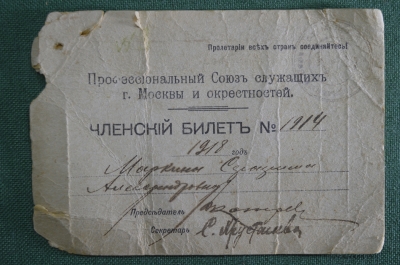 Пролетаріи всѣхъ странъ соединяйтесь!
Профессіональный Союзъ служащихъ
г. Москвы и окрестностей.
ЧЛЕНСКІЙ БИЛЕТЪ № 1914
1918 года
Александровичу
Предсѣдатель
Секретарь